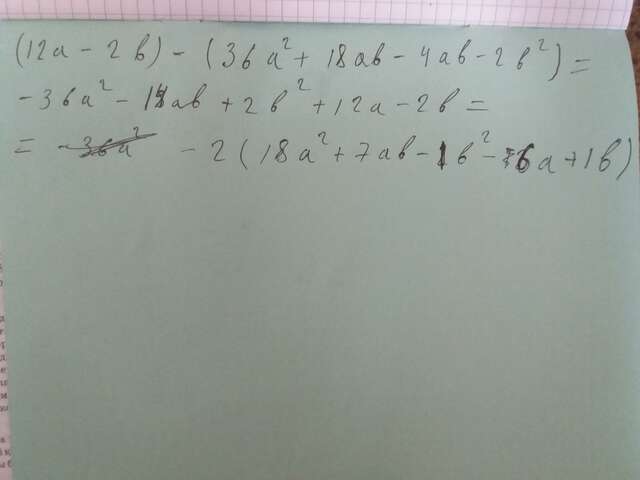 (12a - 2b) - (36a² + 18ab - 4ab - 2b²) =
- 36a² - 14ab + 2b² + 12a - 2b =
= - 36a² - 2(18a² + 7ab - 1b² - 6a + 1b)